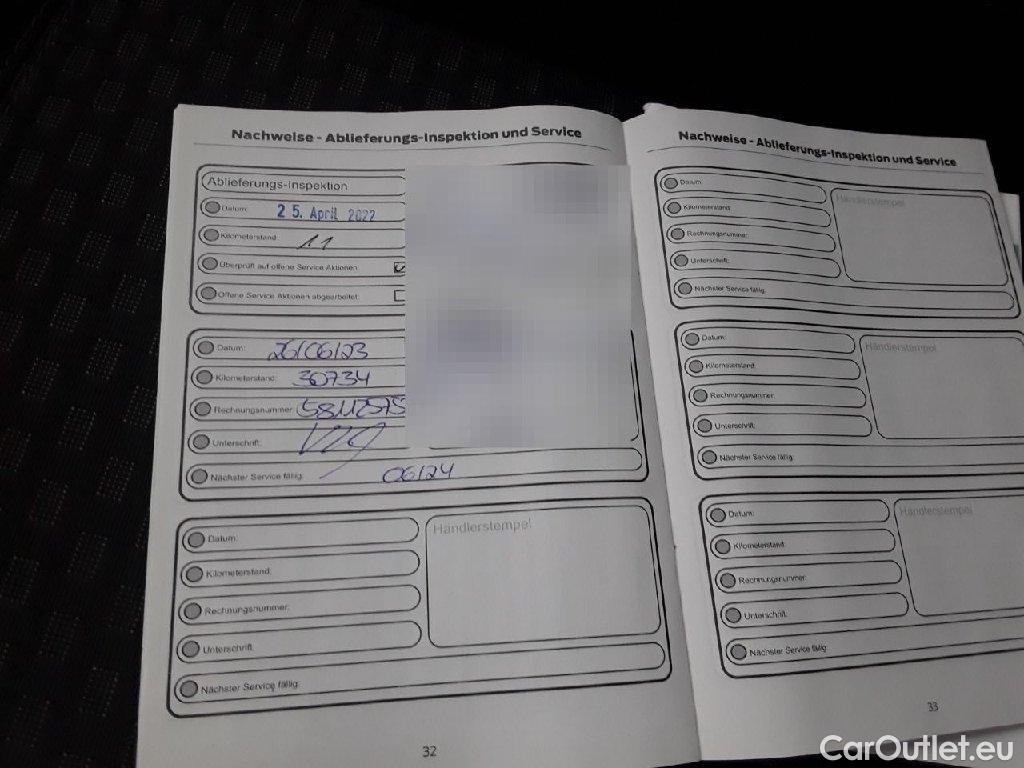 Nachweise - Ablieferungs-Inspektion und Service
Ablieferungs-Inspektion
Datum: 25. April 2022
Kilometerstand: 11
Überprüft auf offene Service Aktionen:
Offene Service Aktionen abgearbeitet:
Datum: 26/06/23
Kilometerstand: 30734
Rechnungsnummer: 58112575
Unterschrift:
Nächster Service fällig: 06/24
Datum:
Händlerstempel
Kilometerstand:
Rechnungsnummer:
Unterschrift:
Nächster Service fällig:
32
Nachweise - Ablieferungs-Inspektion und Service
Datum:
Händlerstempel
Kilometerstand:
Rechnungsnummer:
Unterschrift:
Nächster Service fällig:
Datum:
Händlerstempel
Kilometerstand:
Rechnungsnummer:
Unterschrift:
Nächster Service fällig:
Datum:
Händlerstempel
Kilometerstand:
Rechnungsnummer:
Unterschrift:
Nächster Service fällig:
33
CarOutlet.eu